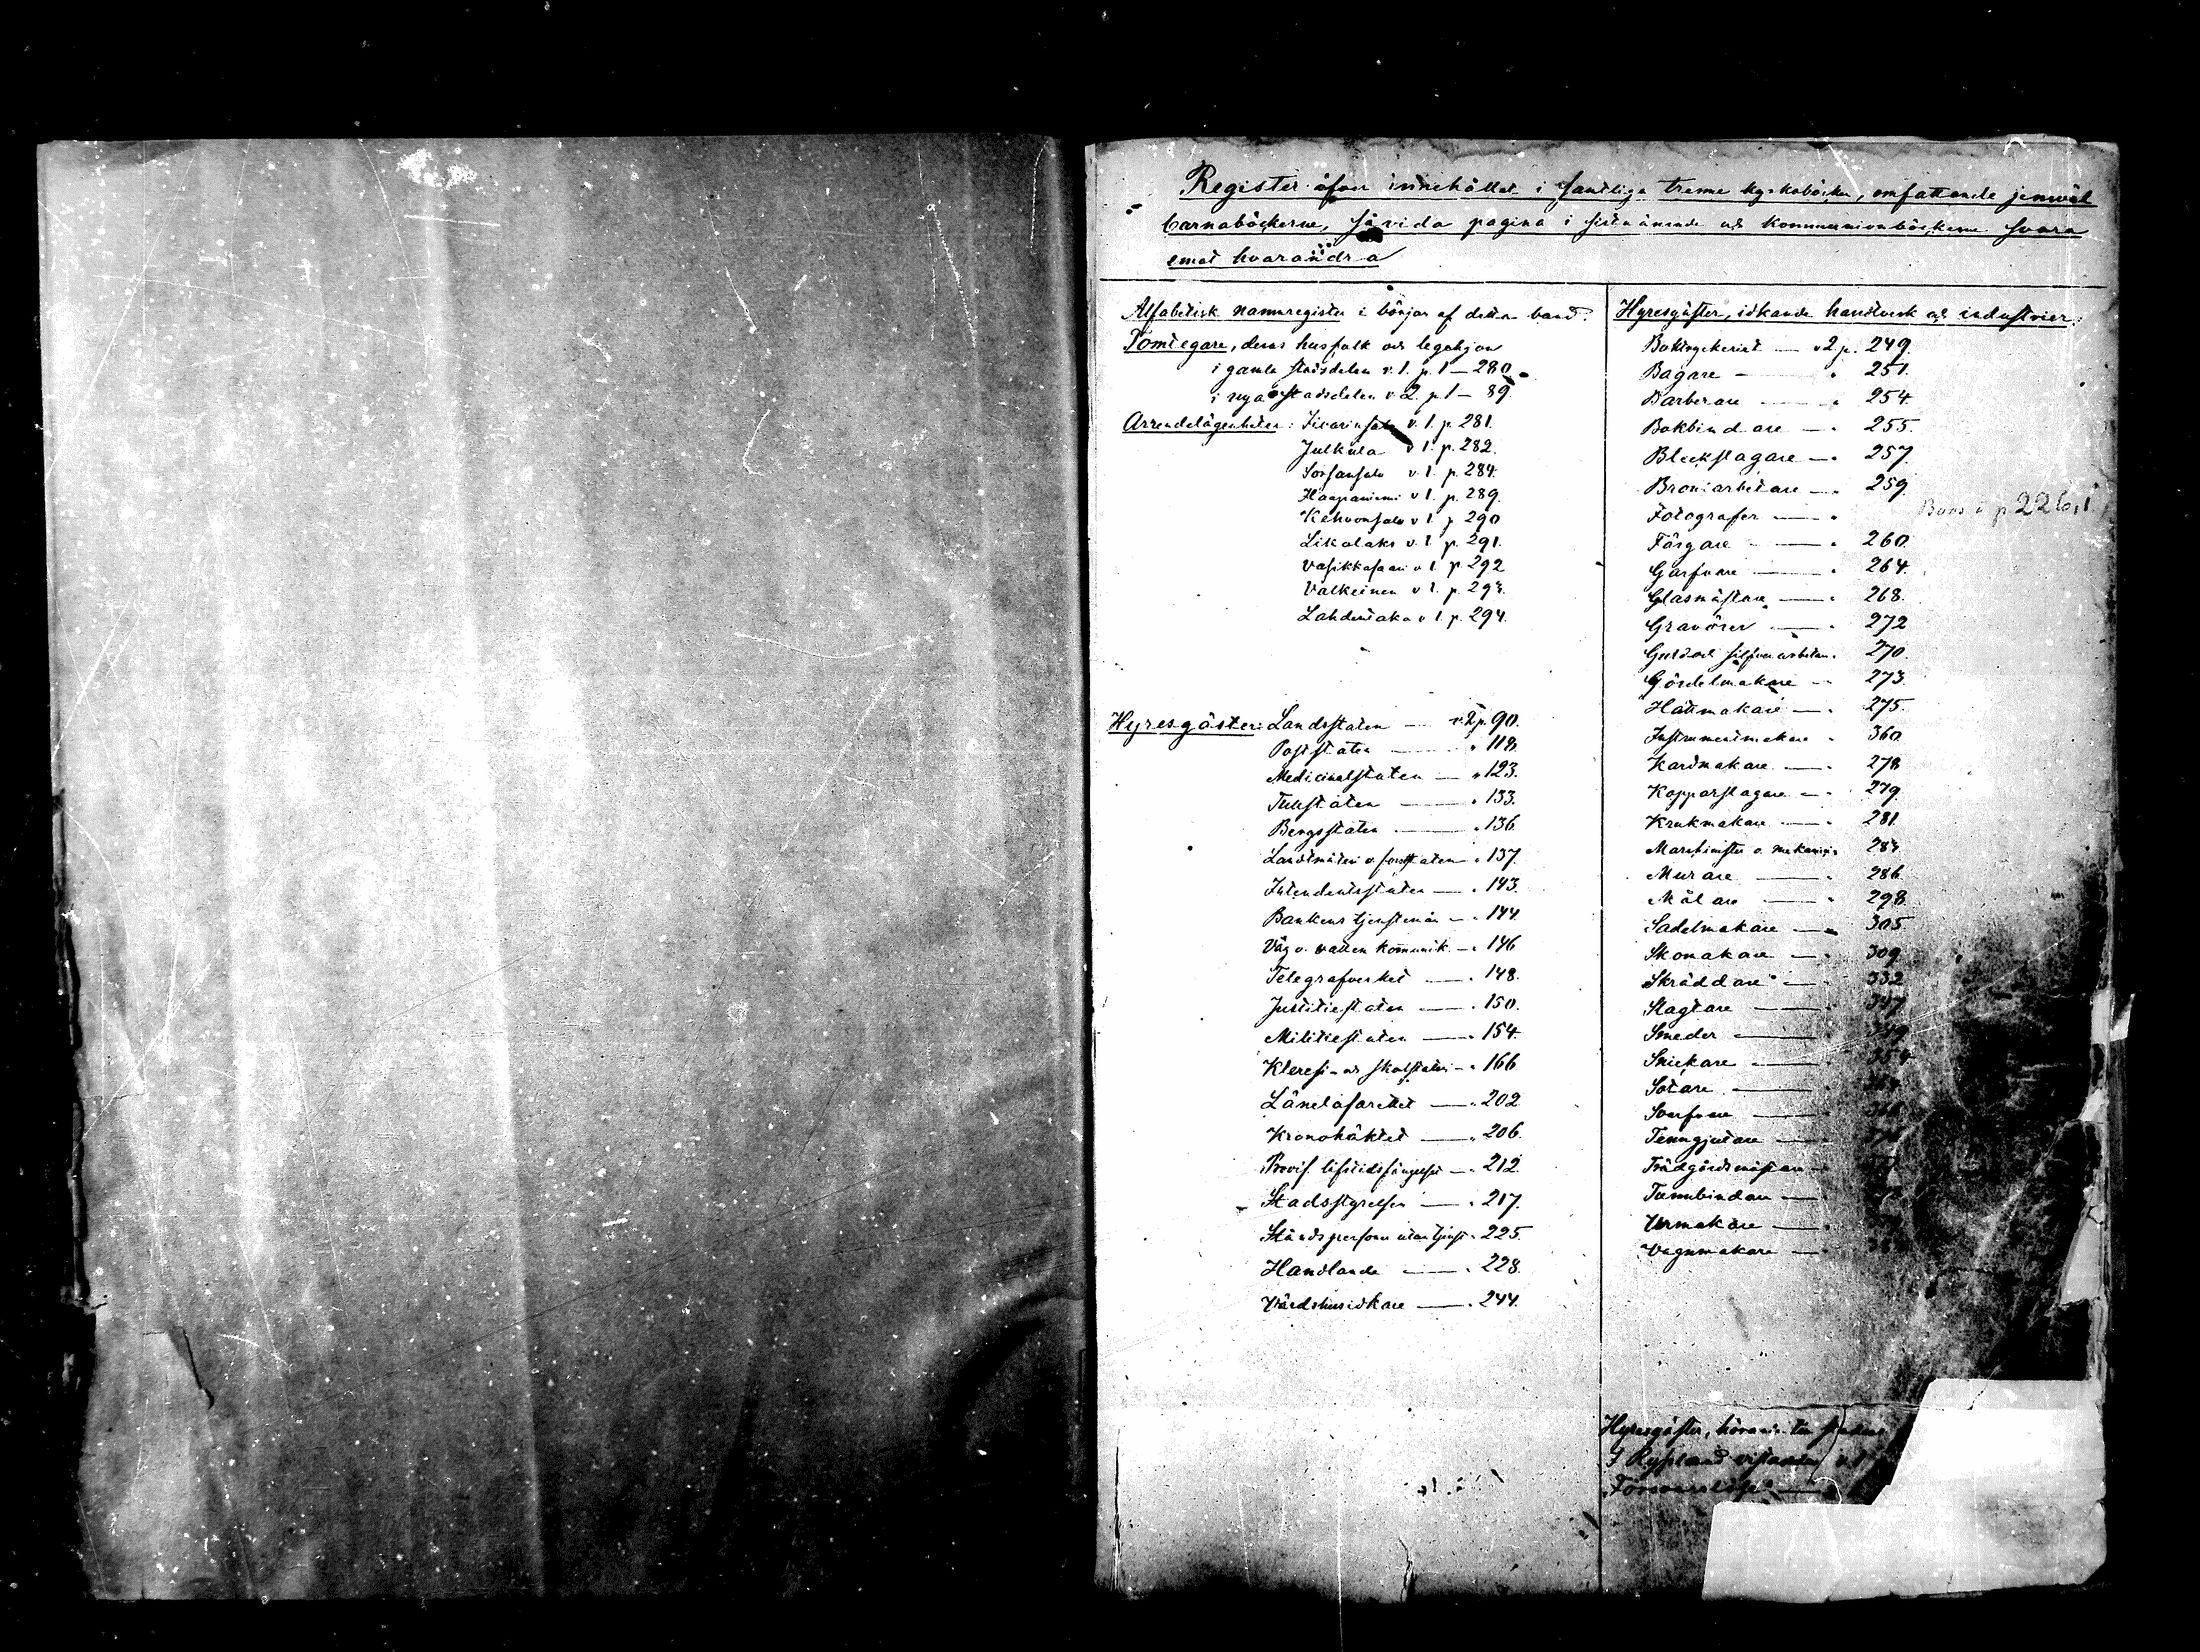 Register öfver innehållet i samtliga trenne kyrkoböcker, omfattande jemväl
barnaböckerne, såvida pagina i sistnämnde och kommunionböckerne svara
emot hvarandra
Alfabetisk namnregister i början af detta band.
Tomtegare, deras husfolk och legohjon
i gamla stadsdelen v. 1. p. 1 — 280.
i nya stadsdelen v. 2. p. 1 — 89.
Arrendelägenheter: v. 1. p. 281.
Julkula v 1. p. 282.
Sorsansalo v. 1. p. 284.
Haapaniemi v 1. p. 289.
Kehvonsalo v 1. p. 290
Likolaks v. 1. p. 291.
Vasikkasaari v 1. p. 292
Valkeinen v 1. p. 293.
Lahdentaka v 1. p. 294.
Hyresgäster: Landsstaten — v. 2 p. 90.
Poststaten — " 118.
Medicinalstaten — " 123.
Tullstaten — " 133.
Bergsstaten — " 136.
Landtmäteri o. forststaten " 137.
Intendentsstaten — " 143.
Bankens tjenstemän — " 144.
Väg o. vatten kommunik. — " 146
Telegrafverket — " 148.
Justitiestaten — " 150.
Militiestaten — " 154.
Kleresi- och skolstaten — " 166
Länelasarettet — " 202
Kronohäktet — " 206.
Provis. lifstidsfängelset — " 212.
Stadsstyrelsen — " 217.
Ståndspersoner utan tjenst " 225.
Handlande — " 228.
Värdshusidkare — " 244.
Hyresgäster, idkande handtverk och industrier:
Boktryckeriet — v 2 p. 249.
Bagare — " 251.
Barberare — " 254.
Bokbindare — " 255.
Bleckslagare — " 257.
Broniarbetare — " 259.
Fotografer — "
Färgare — " 260.
Garfvare — " 264.
Glasmästare — " 268.
Gravörer — " 272
Guld och silfverarbetare " 270.
Gördelmakare — 273.
Hattmakare — " 275.
Instrumentmakare " 360
Kardmakare — " 278
Kopparslagare — " 279.
Krukmakare — " 281
Maschinister o. mekanici " 283.
Murare — " 286
Målare — " 298.
Sadelmakare — " 305
Skomakare — " 309
Skräddare — " 332
Slagtare — " 347
Smeder — " 349
Snickare — " 354
Sotare — "
Svarfvare — "
Tenngjutare — "
Trädgårdsmästare — "
Tunnbindare — "
Urmakare — "
Vagnmakare — "
Hyresgäster, hörande till
I Ryssland vistande v. 1
Försvarslöse —